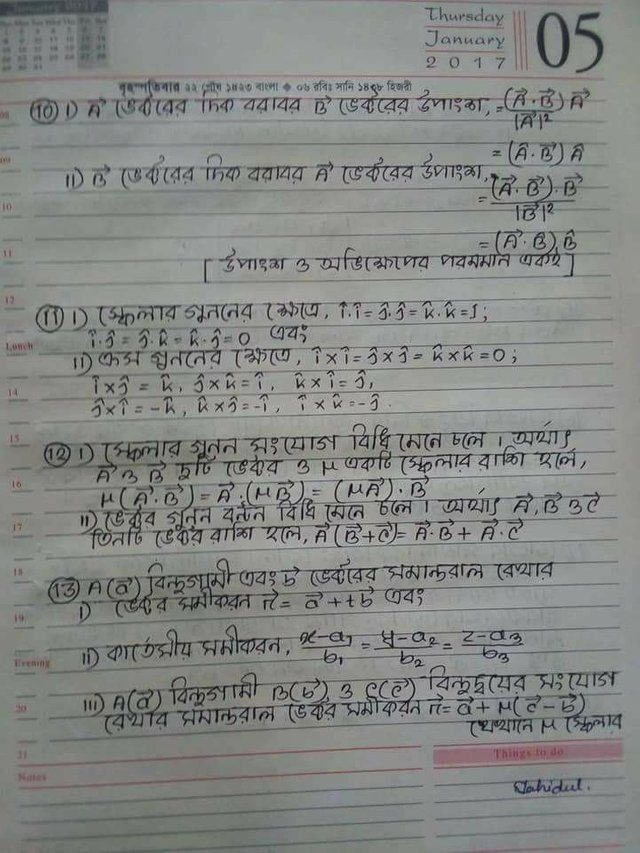 Thursday
January
2017
05
বৃহস্পতিবার ২২ পৌষ ১৪২৩ বাংলা ◆ ০৬ রবিঃ সানি ১৪৩৮ হিজরী
⑩ i) A⃗ ভেক্টরের দিক বরাবর B⃗ ভেক্টরের উপাংশ, = (A⃗·B⃗) A⃗ / |A⃗|²
= (A⃗·B⃗) Â
ii) B⃗ ভেক্টরের দিক বরাবর A⃗ ভেক্টরের উপাংশ,
= (A⃗·B⃗)·B⃗ / |B⃗|²
= (A⃗·B) B̂
[ উপাংশ ও অভিক্ষেপের পরমমান একই ]
⑪ i) স্কেলার গুননের ক্ষেত্রে, î·î = ĵ·ĵ = k̂·k̂ = 1;
î·ĵ = ĵ·k̂ = k̂·ĵ = 0 এবং
ii) ক্রস গুননের ক্ষেত্রে, î×î = ĵ×ĵ = k̂×k̂ = 0;
î×ĵ = k̂, ĵ×k̂ = î, k̂×î = ĵ,
ĵ×î = -k̂, k̂×ĵ = -î, î×k̂ = -ĵ.
⑫ i) স্কেলার গুনন সংযোগ বিধি মেনে চলে। অর্থাৎ
A⃗ ও B⃗ দুটি ভেক্টর ও μ একটি স্কেলার রাশি হলে,
μ(A⃗·B⃗) = A⃗·(μB⃗) = (μA⃗)·B⃗
ii) ভেক্টর গুনন বন্টন বিধি মেনে চলে। অর্থাৎ A⃗, B⃗ ও C⃗
তিনটি ভেক্টর রাশি হলে, A⃗(B⃗+C⃗) = A⃗·B⃗ + A⃗·C⃗
⑬ A(a⃗) বিন্দুগামী এবং b⃗ ভেক্টরের সমান্তরাল রেখার
i) ভেক্টর সমীকরন r⃗ = a⃗ + t b⃗ এবং
ii) কার্তেসীয় সমীকরন, (x-a₁)/b₁ = (y-a₂)/b₂ = (z-a₃)/b₃
iii) A(a⃗) বিন্দুগামী B(b⃗) ও C(c⃗) বিন্দুদ্বয়ের সংযোগ
রেখার সমান্তরাল ভেক্টর সমীকরন r⃗ = a⃗ + μ(c⃗ - b⃗)
যেখানে μ স্কেলার
Things to do
Notes
Jahidul.
09
10
11
12
Lunch
14
15
16
17
18
19
Evening
20
21